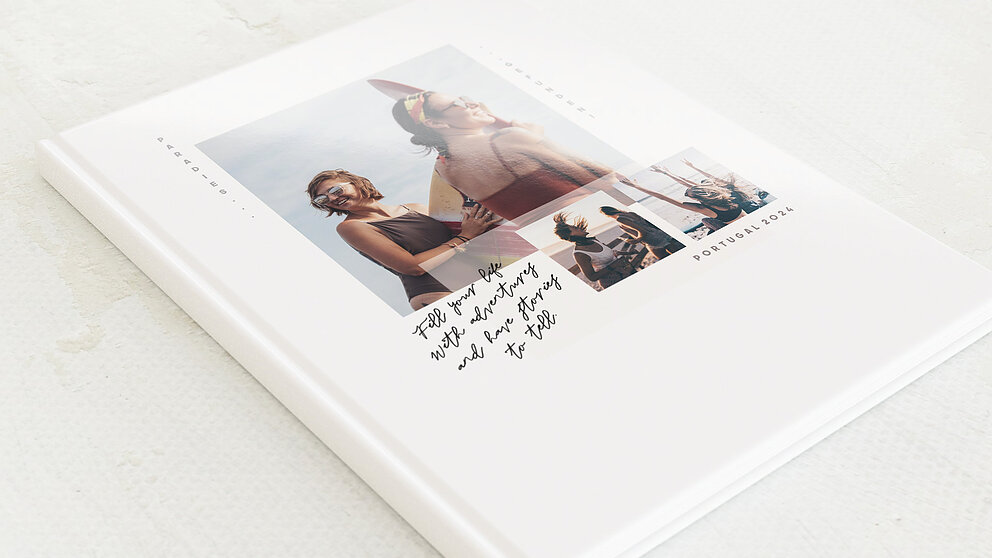 PARADIES...
...GEFUNDEN!
PORTUGAL 2024
Fill your life
with adventures
and have stories
to tell.